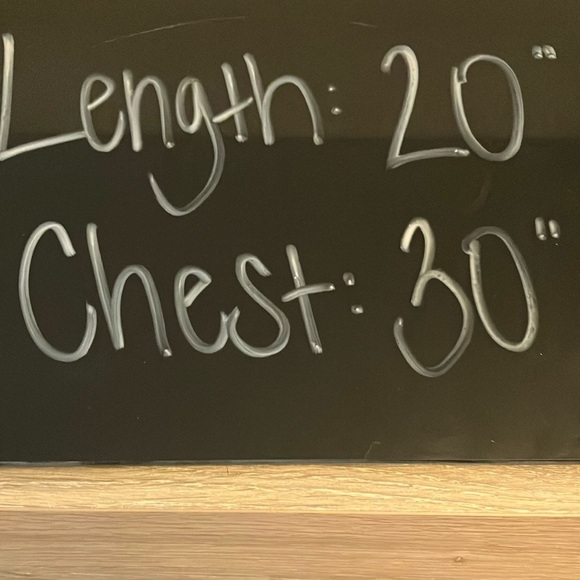 Length: 20"
Chest: 30"